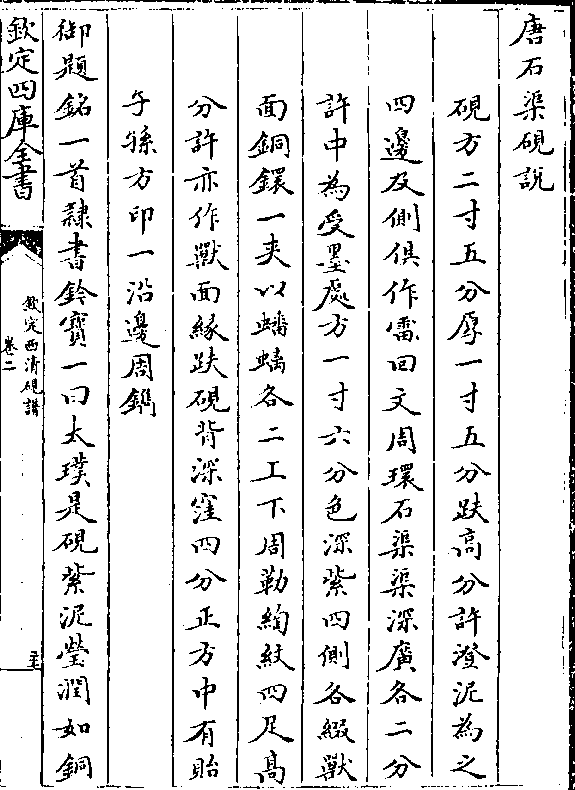 唐石渠硯說
硯方二寸五分厚一寸五分趺高分許澄泥為之
四邊及側俱作雷回文周環石渠渠深廣各二分
許中為受墨處方一寸六分色深紫四側各綴獸
面銅鐶一夾以蟠螭各二工下周勒綯紋四足高
分許亦作獸面緣趺硯背深窪四分正方中有貽
子孫方印一沿邊周鐫
御題銘一首隸書鈐寶一曰太璞是硯紫泥瑩潤如銅
欽定四庫全書
欽定西清硯譜
卷二